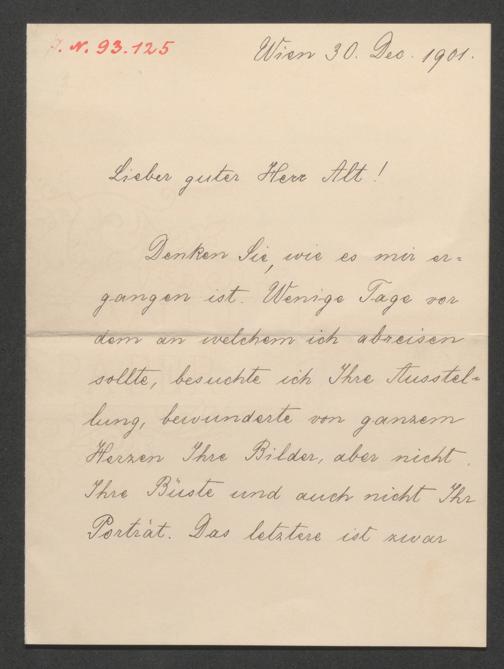 J. N. 93.125
Wien 30. Dec. 1901.
Lieber guter Herr Alt!
Denken Sie, wie es mir er=
gangen ist. Wenige Tage vor
dem an welchem ich abreisen
sollte, besuchte ich Ihre Ausstel=
lung, bewunderte von ganzem
Herzen Ihre Bilder, aber nicht
Ihre Büste und auch nicht Ihr
Porträt. Das letztere ist zwar